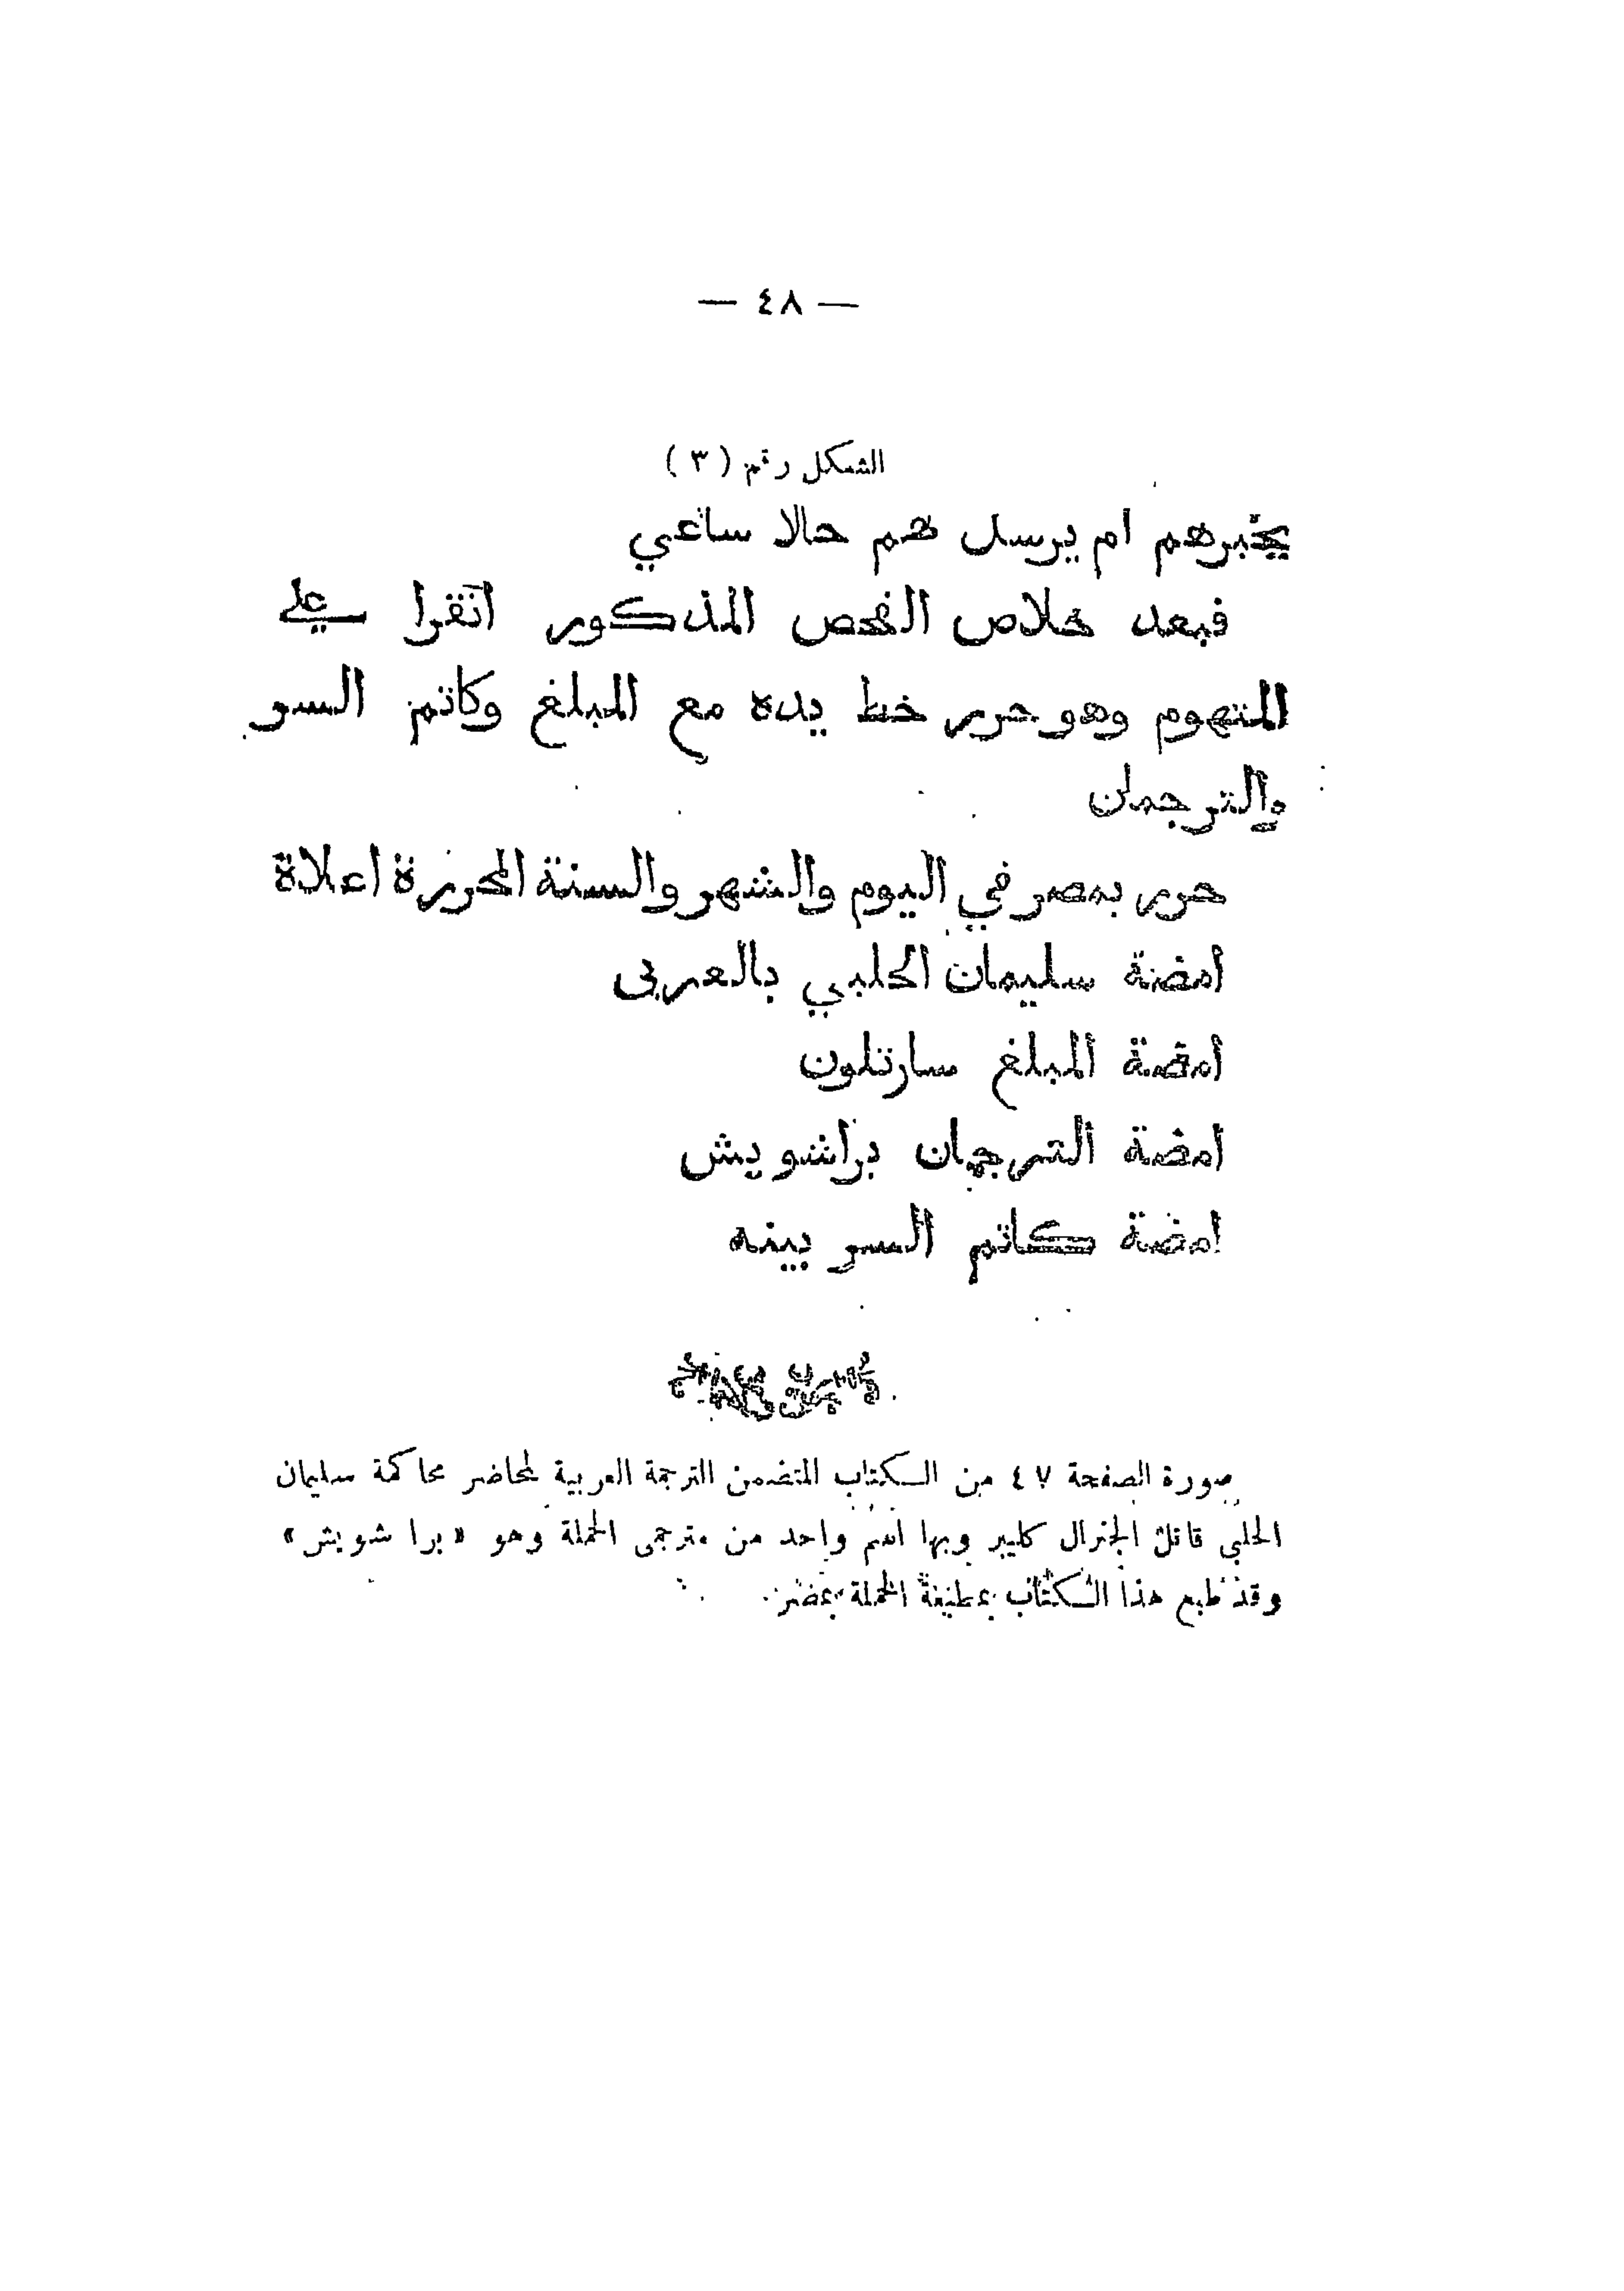 — ٤٨ —
الشكل رقم ( ٣ )
يخبرهم ام يرسل هم حالا ساعي
فبعد خلاص الفحص المذكور انقرا علي
المتهوم وهو حرر خط يده مع المبلغ وكاتم السر
والترجمان
حرر بمصر في اليوم والشهر والسنة المحررة اعلاة
امضة سليمان الحلبي بالعربى
امضة المبلغ سارتلون
امضة الترجمان براشويش
امضة كاتم السر بينه
صورة الصفحة ٤٧ من الكتاب المتضمن الترجمة العربية لمحاضر محاكمة سليمان
الحلبي قاتل الجنرال كليبر وبها اسم واحد من مترجمى الحملة وهو « برا شويش »
وقد طبع هذا الكتاب بمطبعة الحملة بمصر .